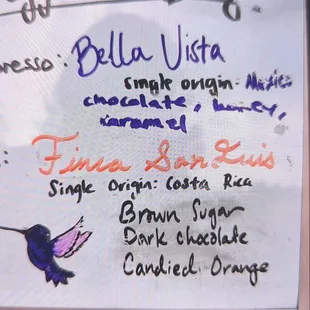 resso: Bella Vista
single origin: Mexico
chocolate, honey,
karamel
: Finca San Luis
Single Origin: Costa Rica
Brown Sugar
Dark chocolate
Candied Orange